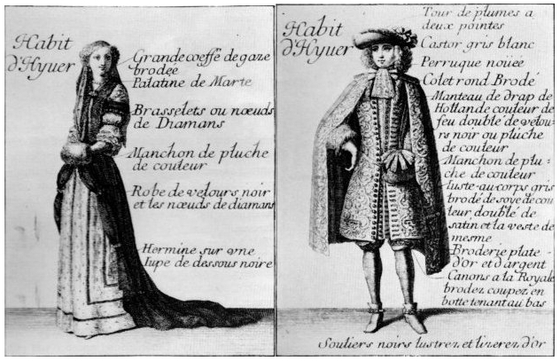 Habit
d'Hyuer
Grande coeffe de gaze
brodée
Palatine de Marte
Brasselets ou nœuds
de Diamans
Manchon de pluche
de couleur
Robe de velours noir
et les nœuds de diamans
Hermine sur vne
Iupe de dessous noire
Habit
d'Hyuer
Tour de plumes a
deux pointes
Castor gris blanc
Perruque nouëe
Colet rond Brodé
Manteau de drap de
Hollande couleur de
feu doublé de velou-
rs noir ou pluche
de couleur
Manchon de plu-
che de couleur
Iuste-au-corps gris
brodé de soye de cou
leur doublé de
satin et la veste de
mesme
Broderie plate
d'or et d'argent
Canons a la Royale
brodez coupez en
botte tonant au bas
Souliers noirs lustrez et lizerez d'or